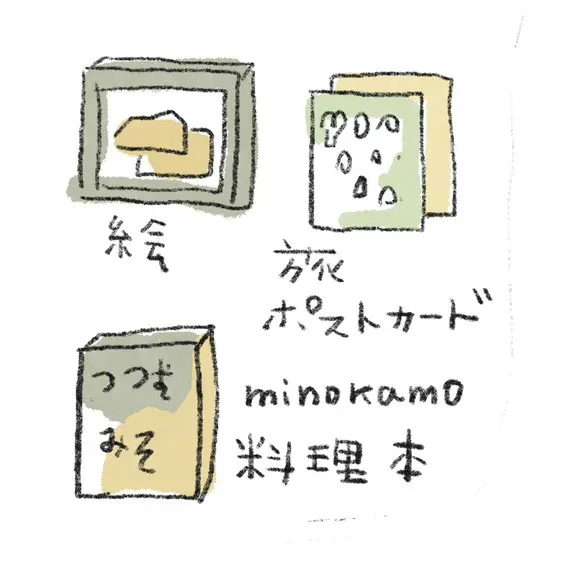 絵
旅
ポストカード
つつむ
みそ
minokamo
料理本